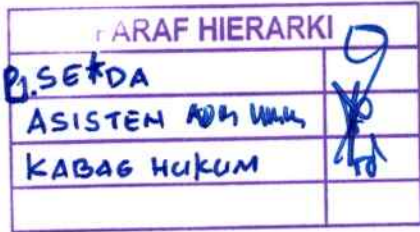 PARAF HIERARKI
Pj. SEKDA
ASISTEN ADM UMUM
KABAG HUKUM